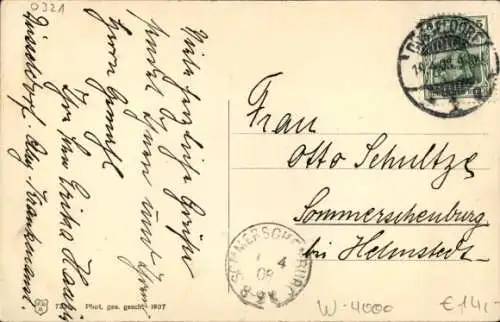 0321
Viele herzliche Grüße
sendet Ihnen und Ihrem
Herrn Gemahl
Düsseldorf. Allg. Krankenanst.
DÜSSELDORF
Frau
Otto Schultze
Sommerschenburg
bei Helmstedt.
SOMMERSCHENBURG
Phot. ges. gesch. 1907
W-4000
€14,-